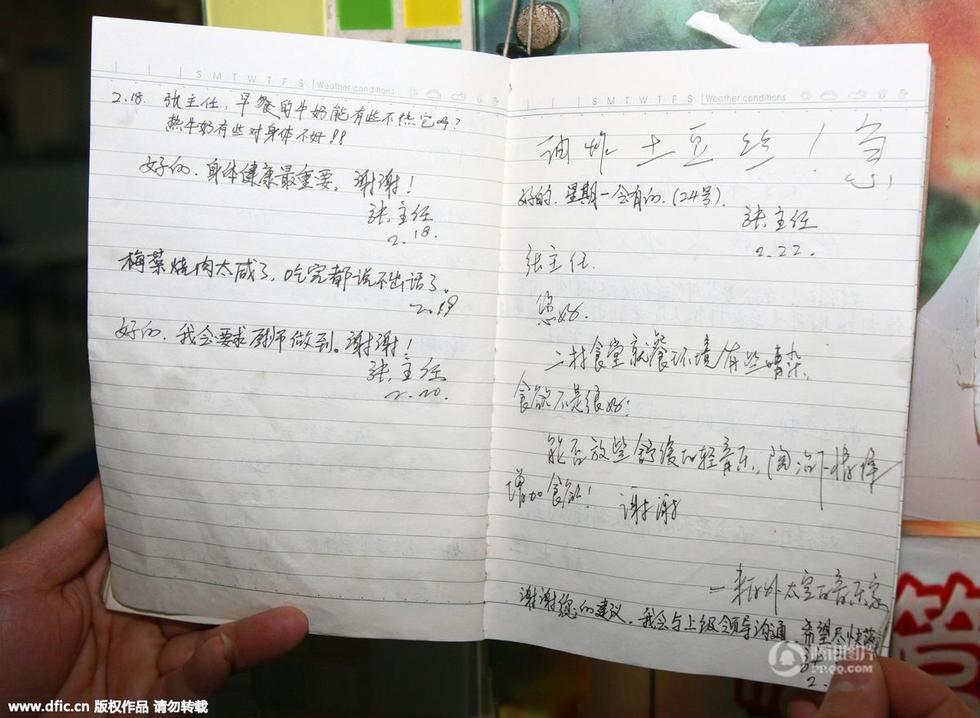 S M T W T F S Weather conditions
2.18. 张主任,早餐的牛奶能有些不热它吗?
热牛奶有些对身体不好!!
好的.身体健康最重要。谢谢!
张主任
2.18.
梅菜烧肉太咸了,吃完都说不出话了。
2.19
好的.我会要求厨师做到。谢谢!
张主任
2.20.
S M T W T F S Weather conditions
油炸土豆丝!急
好的.星期一会有的.(24号).
张主任
2.22.
张主任.
您好.
二村食堂就餐环境有些嘈杂.
食欲不是很好!
能否放些舒缓的轻音乐.陶冶下情操
增加食欲! 谢谢
一来自外太空的音乐家
谢谢您的建议.我会与上级领导沟通.希望尽快
2.
答
腾讯图片
PPQQ.COM
www.dfic.cn 版权作品 请勿转载